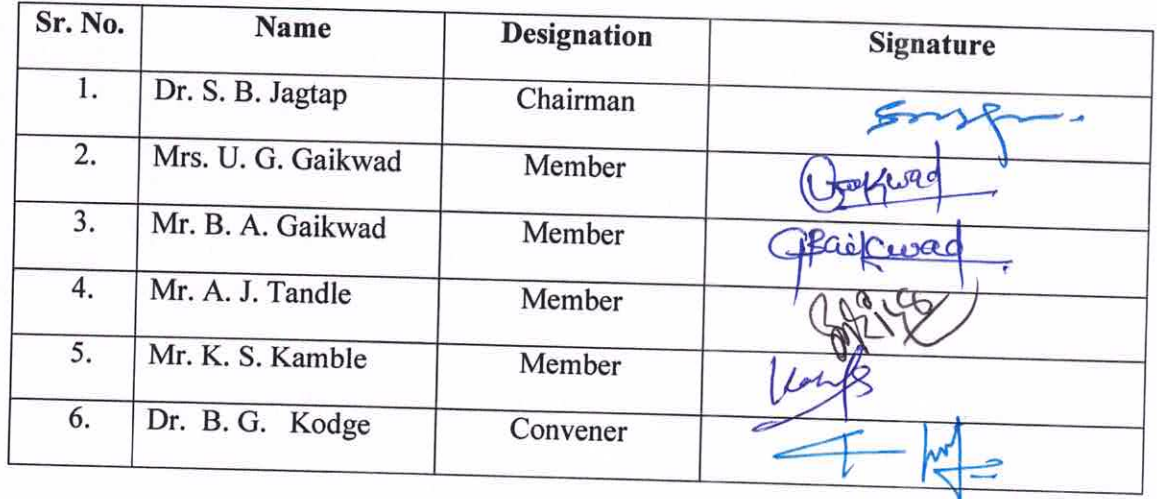 Sr. No. Name Designation Signature
1. Dr. S. B. Jagtap Chairman
2. Mrs. U. G. Gaikwad Member Gaikwad
3. Mr. B. A. Gaikwad Member GBaikwad
4. Mr. A. J. Tandle Member
5. Mr. K. S. Kamble Member
6. Dr. B. G. Kodge Convener